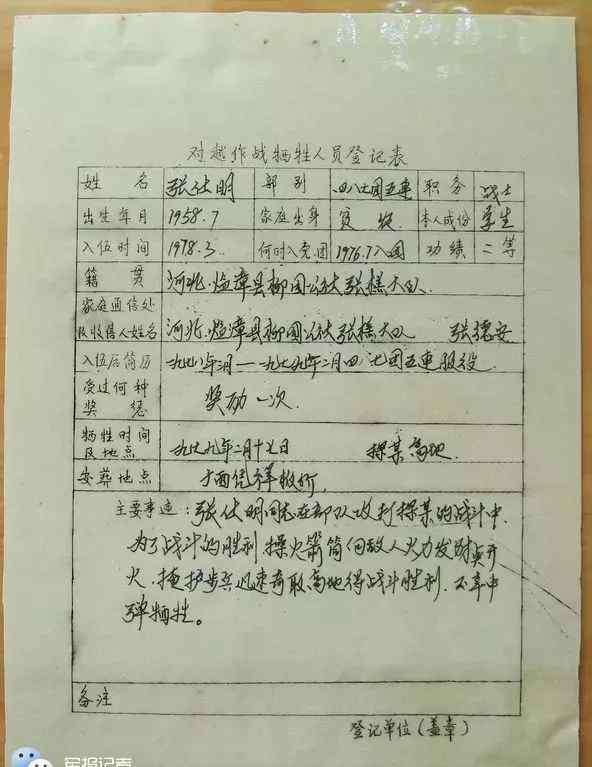 对越作战牺牲人员登记表
姓名 张仕明 部别 四八七团五连 职务 战士
出生年月 1958.7 家庭出身 贫 本人成份 学生
入伍时间 1978.3 何时入党团 1976.7入团 功绩 二等
籍贯 河北临漳县柳园公社张榛大队
家庭通信处及收信人姓名 河北临漳县柳园公社张榛大队 张德安
入伍后简历 一九七八年三月—一九七九年二月四八七团五连服役
受过何种奖惩 奖励一次
牺牲时间及地点 一九七九年二月十七日 探某高地
安葬地点 广西凭祥
主要事迹：张仕明同志在部队攻打探某的战斗中，
为了战斗的胜利，操火箭筒向敌人火力发射点开
火，掩护步兵迅速夺取高地得战斗胜利，不幸中
弹牺牲。
备注
登记单位（盖章）